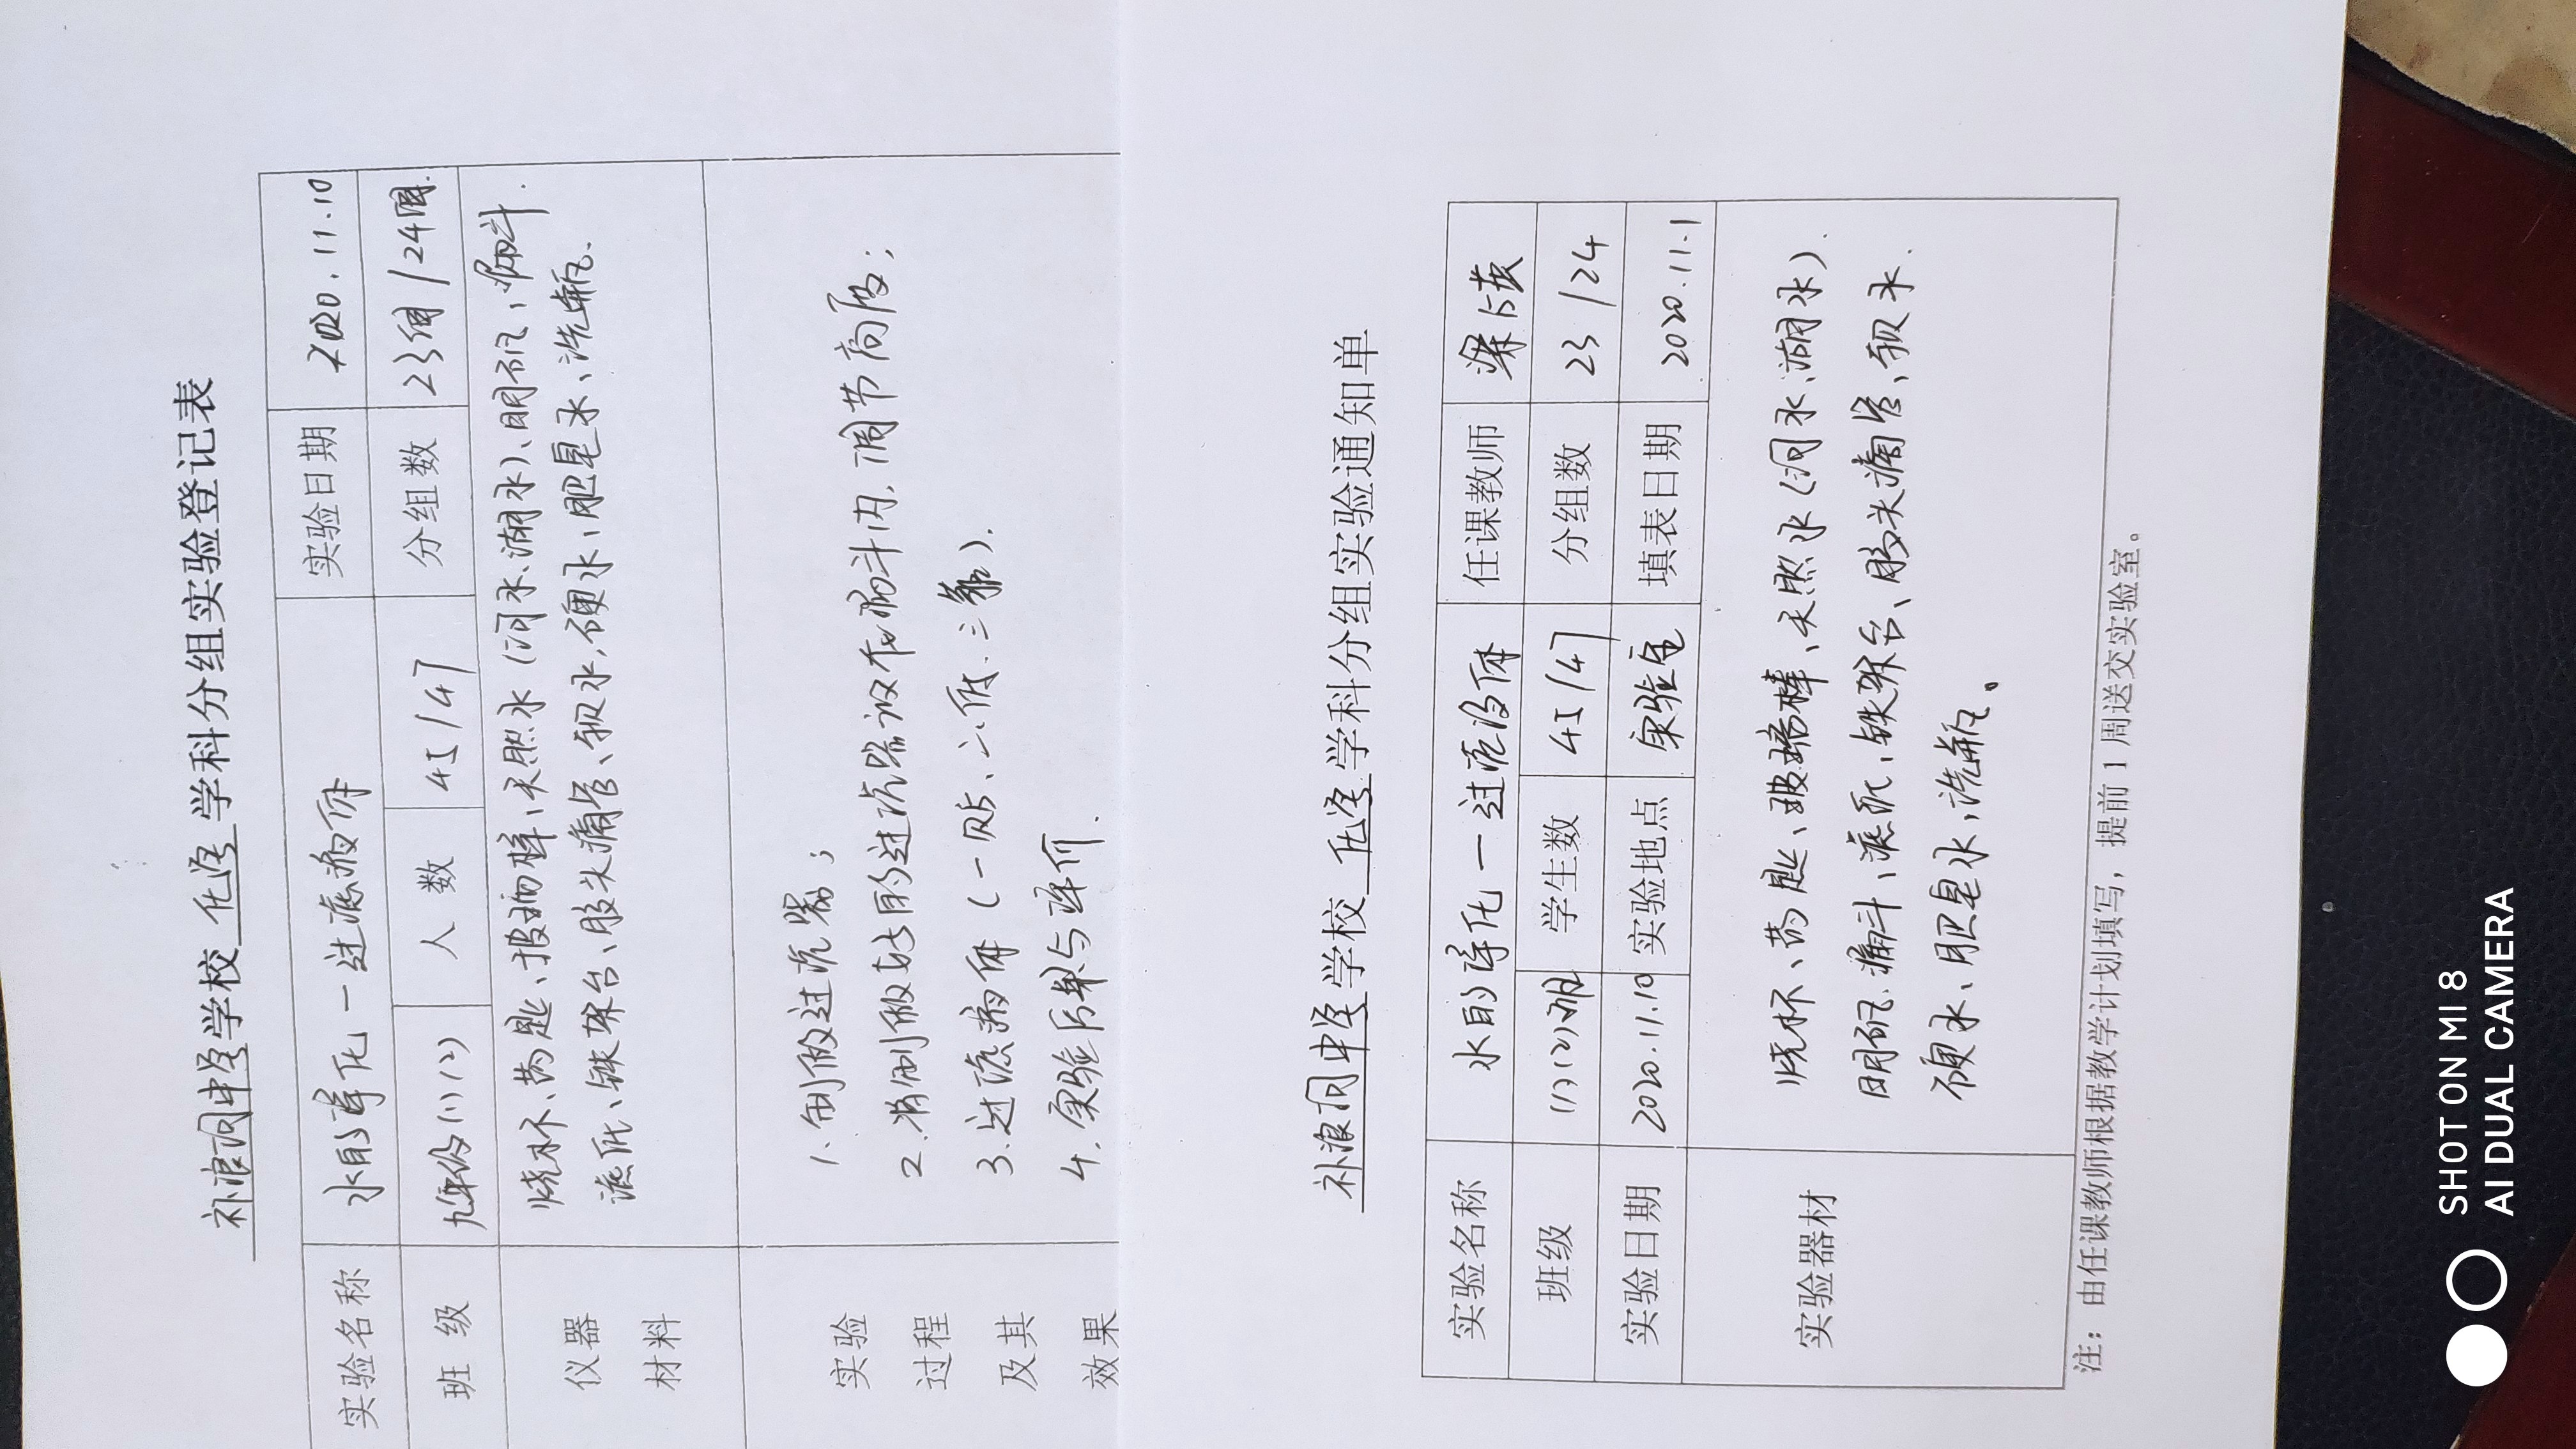 补浪河中学学校 化学 学科分组实验登记表
实验名称 水的净化一过滤操作 实验日期 2020.11.10
班 级 九年级(1)(2) 人 数 45/47 分组数 23组/24组.
仪器 材料
烧杯、药匙、玻璃棒、天然水(河水、湖水)、明矾、漏斗.
滤纸、铁架台、胶头滴管、软水、硬水、肥皂水、洗瓶.
实验 过程 及其 效果
1.制做过滤器;
2.将制做好的过滤器放在漏斗内,调节高度;
3.过滤操作(一贴、二低、三靠).
4.实验后果与评价.
补浪河中学学校 化学 学科分组实验通知单
实验名称 水的净化一过滤操作 任课教师
班级 (1)(2)班 学生数 45/47 分组数 23/24
实验日期 2020.11.10 实验地点 实验室 填表日期 2020.11.1
实验器材
烧杯、药匙、玻璃棒、天然水(河水、湖水).
明矾.漏斗、滤纸、铁架台、胶头滴管、软水.
硬水、肥皂水、洗瓶。
注：由任课教师根据教学计划填写，提前1周送交实验室。
SHOT ON MI 8
AI DUAL CAMERA